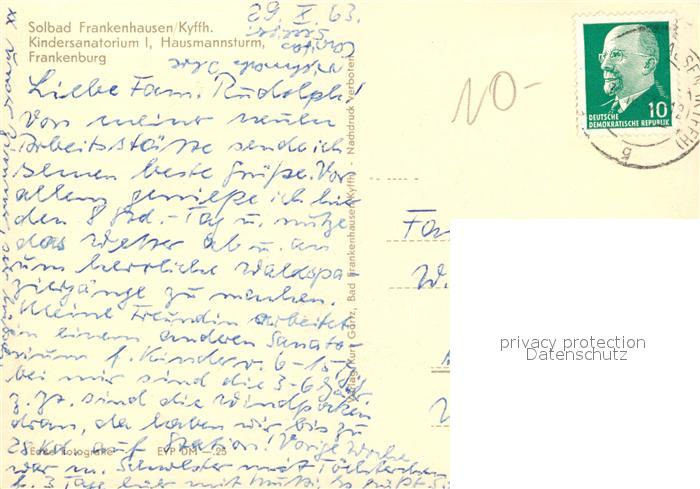 Solbad Frankenhausen/Kyffh.
Kindersanatorium I, Hausmannsturm,
Frankenburg
29. X. 63.
Liebe Fam. Rudolph!
Von meiner neuen
Arbeitsstätte sende ich
Ihnen beste Grüße. Vor
allem genieße ich hier
den 8 Std.-Tag u. nutze
das Wetter ab u. an
zum herrliche Waldspa
ziergänge zu machen.
Meine Freundin arbeitet
in einem anderen Sanato-
rium f. Kinder v. 6-15
bei mir sind die 3-6 jähr.
z. Zt. sind die Windpocken
dran, da haben wir bis zu
28 Kd. auf Station! Vorige Woche
war m. Schwester mit Töchterchen
f. 3 Tage hier mit Mutti. Es grüßt
Echte Fotografie EVP DM —.25
Verlag Kurt Gürtz, Bad Frankenhausen/Kyffh. - Nachdruck verboten
10-
10
DEUTSCHE
DEMOKRATISCHE REPUBLIK
Fa
W.
privacy protection
Datenschutz